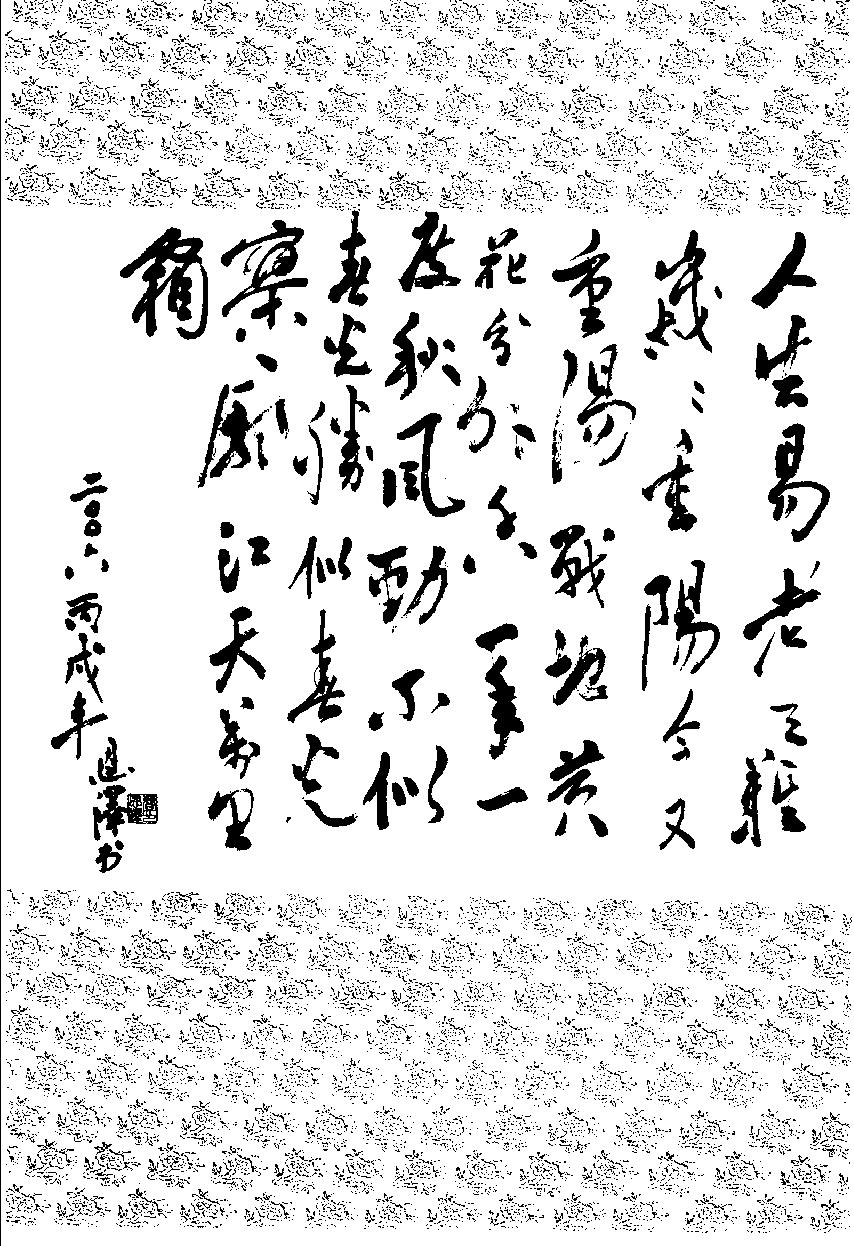 人生易老天難
歲〻重陽今又
重陽戰地黃
花分外香一年一
度秋風勁不似
春光勝似春光
寥廓江天萬里
霜
二〇〇六丙戌年
恩澤书